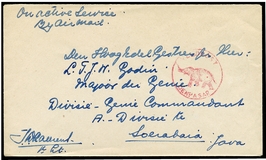 On active Service
By Air Mail.
Den Hoog Edel Gestrengen Heer:
L.T.J.W. Godin
Majoor der Genie
Divisie - Genie Commandant
A - Divisie te
Soerabaia
Java